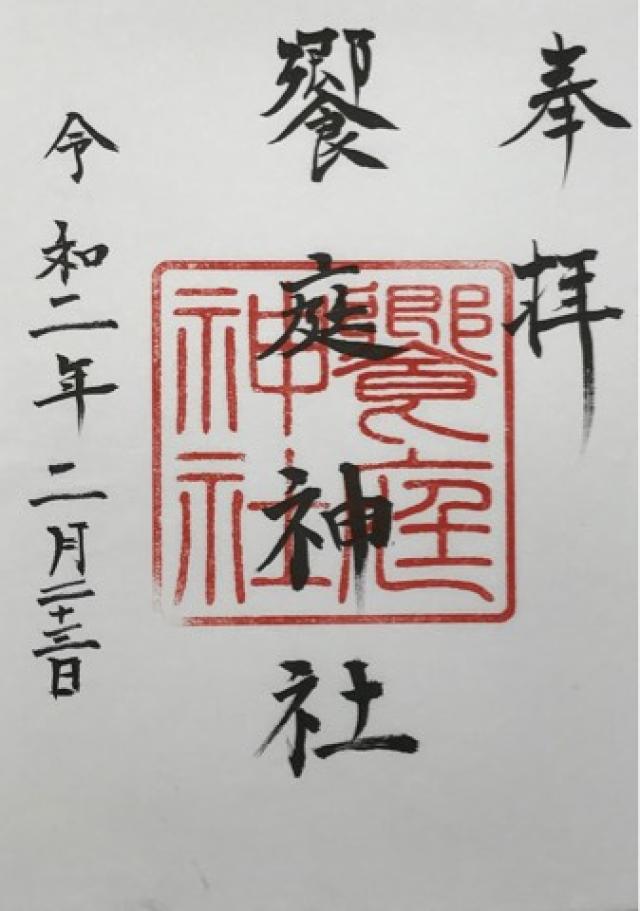 奉拝
饗庭神社
饗庭神社
令和二年二月二十三日